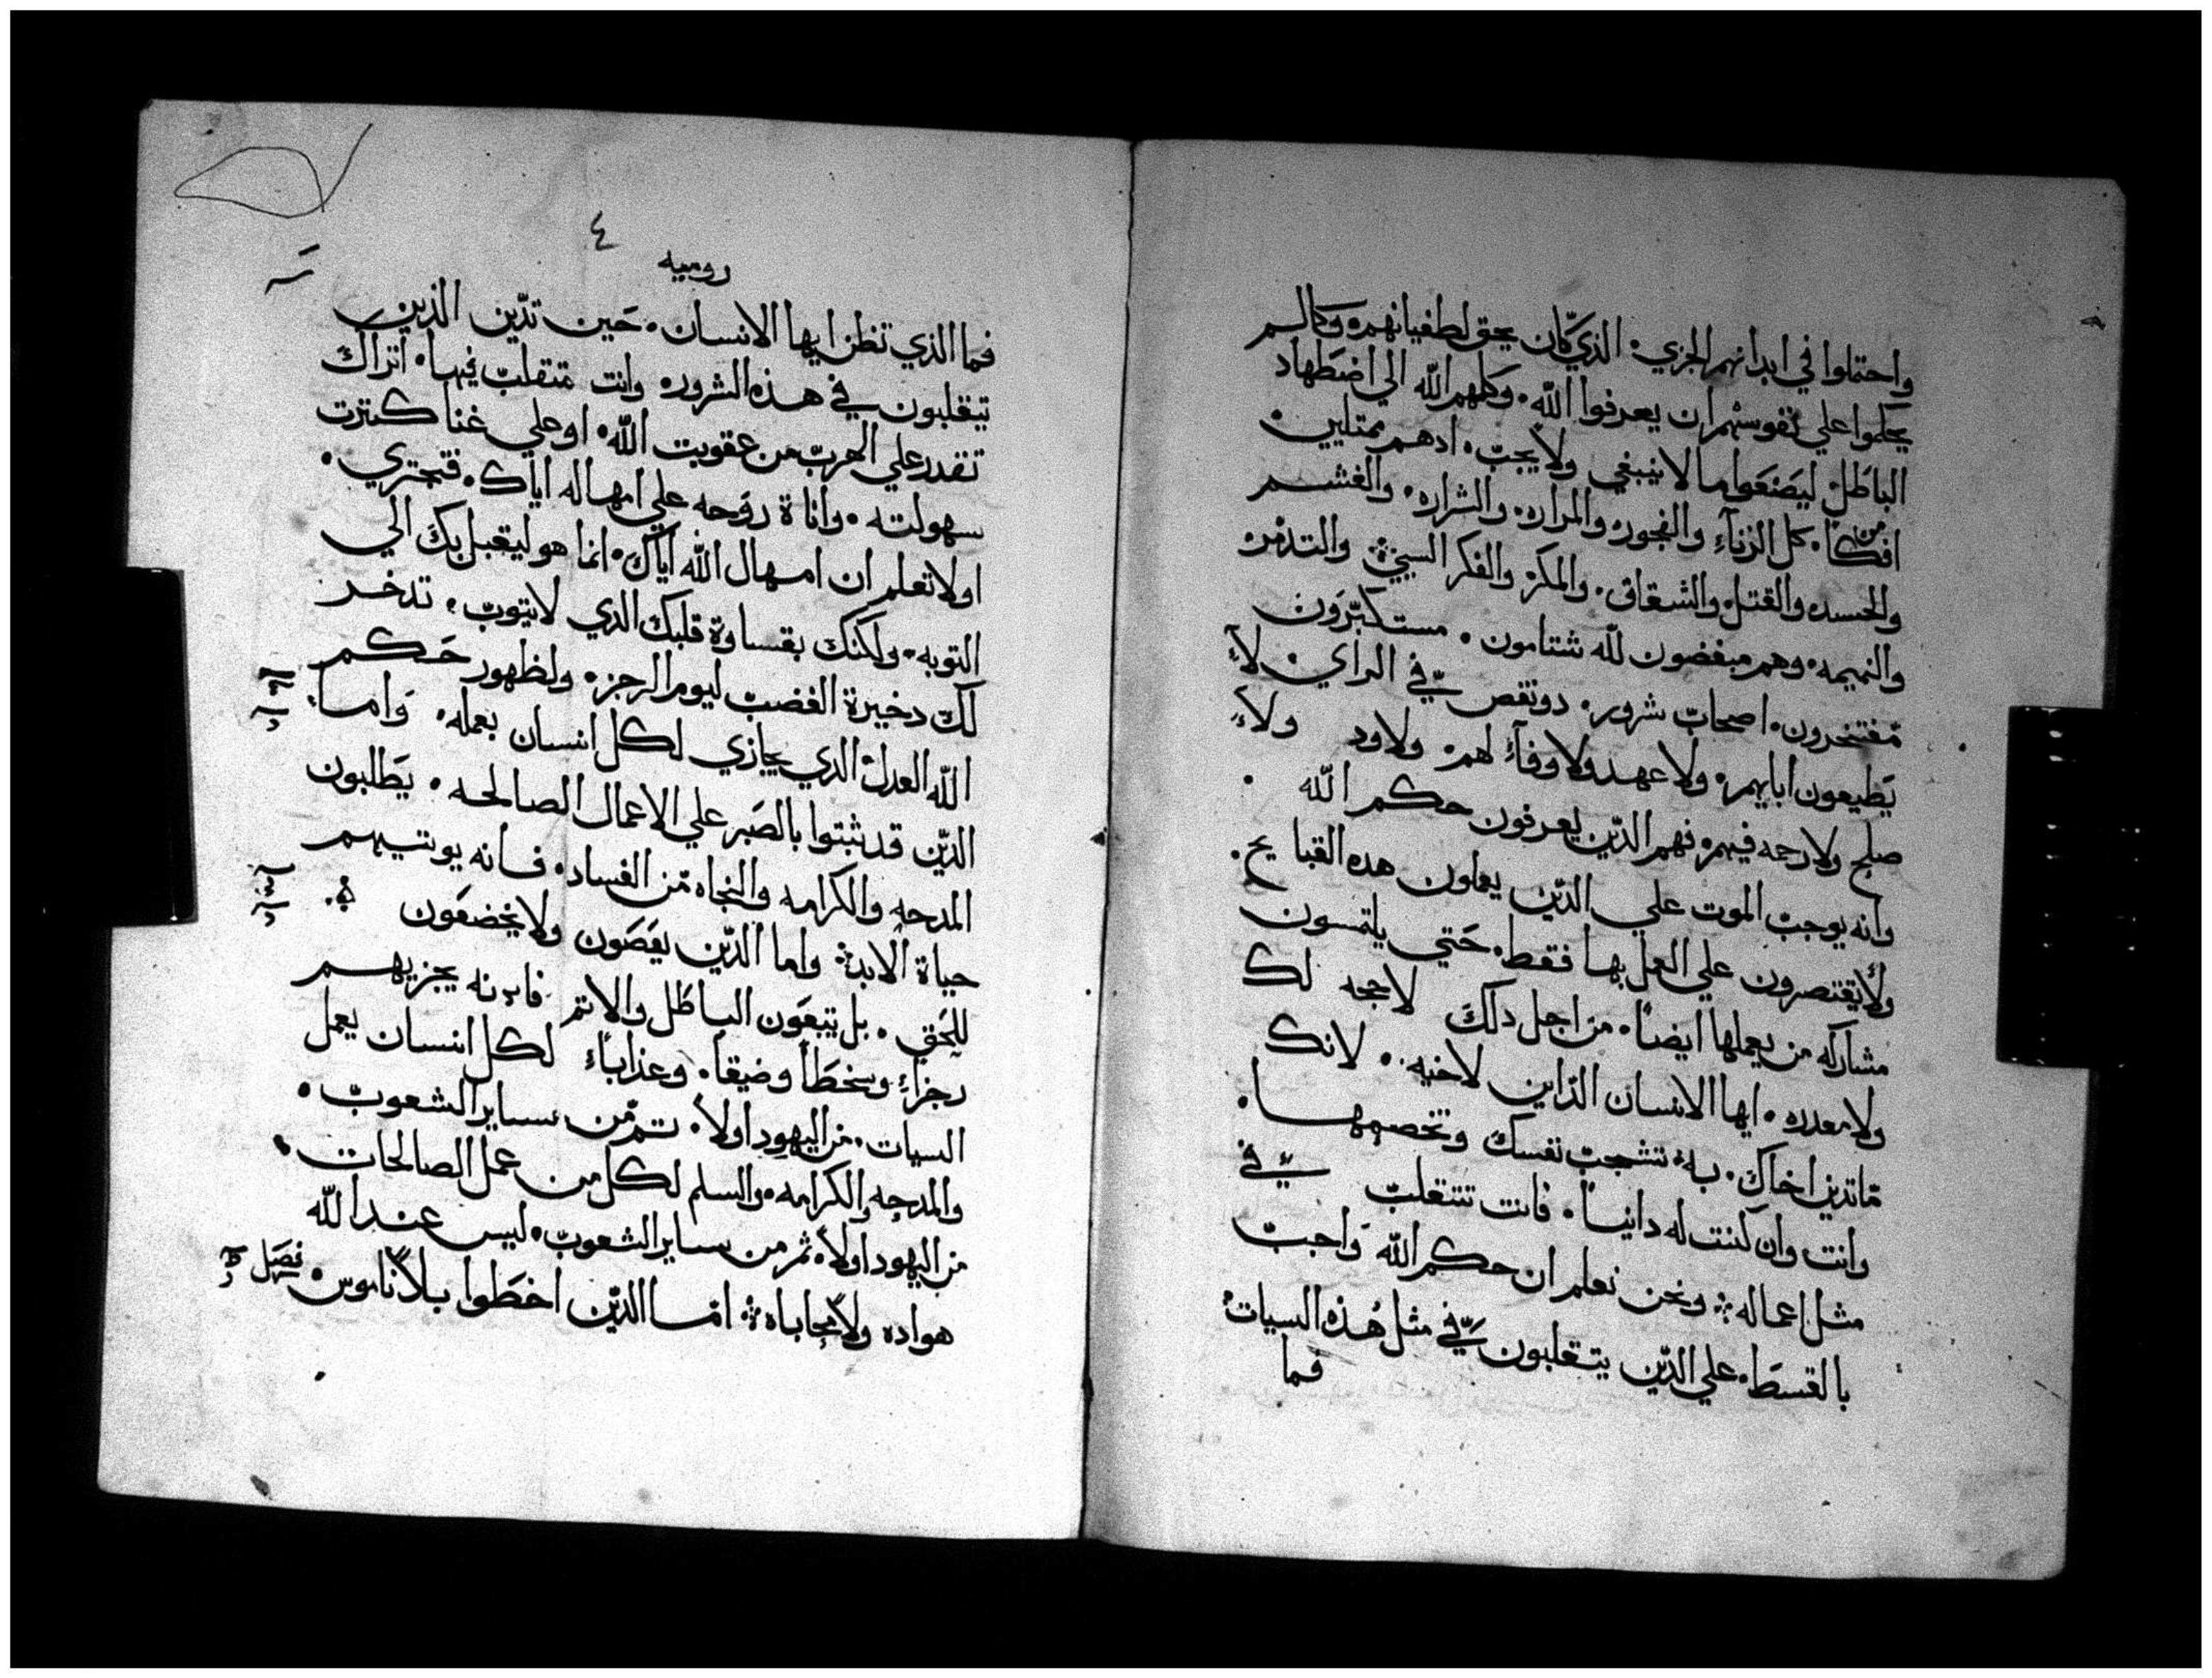 واحتملوا في ابدانهم الجزي. الذي كان يحق لطغيانهم. وكما لم
يحكموا علي نفوسهم ان يعرفوا الله. وكلهم الله الي اضطهاد
الباطل. ليصنعوا ما لا ينبغي ولا يجب. ادهم ممتلين
افكًا. من كل الزناء والفجور. والمراره. والشراره. والغشم
والحسد. والقتل. والشقاق. والمكر. والفكر السيئ والتدمر
والنميمه. وهم مبغضون لله شتامون. مستكبرون
مفتخرون. اصحاب شرور. دو نقص في الراي. لا
يطيعون ابايهم. ولا عهد ولا وفاء لهم. ولا ود ولا
صلح ولا رحمه فيهم. فهم الدين يعرفون حكم الله
وانه يوجب الموت علي الدين يعملون هده القبايح.
ولا يقتصرون علي العمل بها فقط. حتي يلتمسون
مشاركه من يعملها ايضا. من اجل دلك لا حجه لك
ولا معدره. ايها الانسان الداين لاخيه. لانك
ما تدين اخاك. به تشجب نفسك وتخصمها.
وانت وان كنت له داينا. فانت تتقلب في
مثل اعماله ونحن نعلم ان حكم الله واجب
بالقسط. علي الدين يتقلبون في مثل هذه السيات
فما
٤
روميه
فما الذي تظن ايها الانسان. حين تدين الذين
يتقلبون في هذه الشرور. وانت متقلب فيها. اتراك
تقدر علي الهرب من عقوبت الله. او علي غنا كترت
سهولته. واناة روحه علي امهاله اياك. فتجتري.
اولا تعلم ان امهال الله اياك. انما هو ليقبل بك الي
التوبه. ولكنك بقساوة قلبك الدي لا يتوب. تدخر
لك دخيرة الغضب ليوم الرجز. ولظهور حكم
الله العدل. الدي يجازي لكل انسان بعمله. واما
الدين قد ثبتوا بالصبر علي الاعمال الصالحه. يطلبون
المدحه والكرامه والنجاه من الفساد. فانه يوتيهم
حياة الابد واما الدين يعصون ولا يخضعون
للحق. بل يتبعون الباطل والاتم فانه يجزيهم
رجزاء وسخطا وضيقا. وعذاباء لكل انسان يعمل
السيات. من اليهود اولا. تم من ساير الشعوب.
والمدحه والكرامه. والسلم لكل من عمل الصالحات.
من اليهود اولا. ثم من ساير الشعوب. ليس عند الله
هواده ولا محاباه اما الدين اخطوا بلا ناموس. فصل